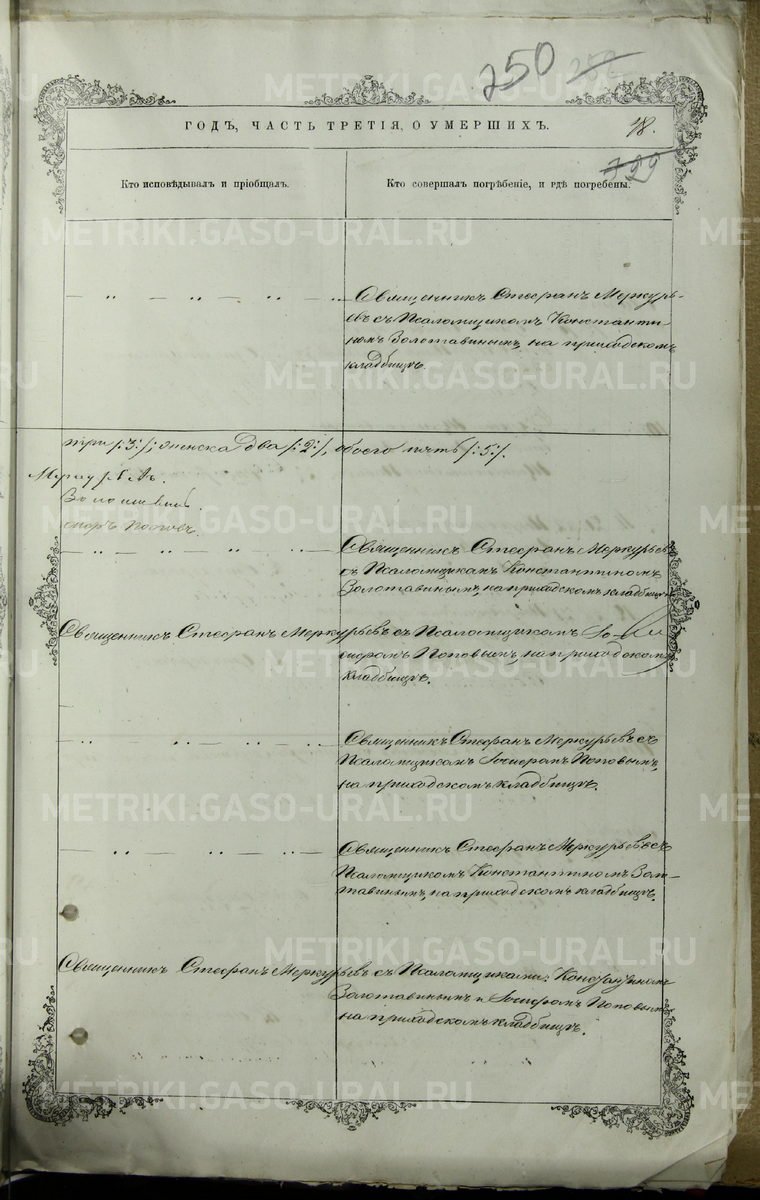 250 252
ГОДЪ, ЧАСТЬ ТРЕТІЯ, О УМЕРШИХЪ.
78.
799
Кто исповѣдывалъ и пріобщалъ.
Кто совершалъ погребеніе, и гдѣ погребены.
Священникъ Стефанъ Меркурь-
евъ съ Псаломщикомъ Константи-
номъ Золотавинымъ, на приходскомъ
кладбищѣ.
три /:3:/, женска два /:2:/, обоего пять /:5:/.
Меркурьевъ.
Поповъ.
Священникъ Стефанъ Меркурьевъ
съ Псаломщикомъ Константиномъ
Золотавинымъ, на приходскомъ кладбищѣ
Священникъ Стефанъ Меркурьевъ съ Псаломщикомъ Іо-
сифомъ Поповымъ, на приходскомъ
кладбищѣ.
Священникъ Стефанъ Меркурьевъ съ
Псаломщикомъ Іосифомъ Поповымъ,
на приходскомъ кладбищѣ.
Священникъ Стефанъ Меркурьевъ съ
Псаломщикомъ Константиномъ Золо-
тавинымъ, на приходскомъ кладбищѣ.
Священникъ Стефанъ Меркурьевъ съ Псаломщиками: Константиномъ
Золотавинымъ и Іосифомъ Поповымъ
на приходскомъ кладбищѣ.
METRIKI.GASO-URAL.RU
METRIKI.GASO-URAL.RU
METRIKI.GASO-URAL.RU
METRIKI.GASO-URAL.RU
METRIKI.GASO-URAL.RU
METRIKI.GASO-URAL.RU
METRIKI.GASO-URAL.RU
METRIKI.GASO-URAL.RU